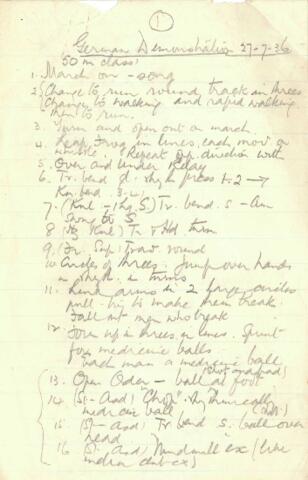 1
German Demonstration 27-7-36
50 m class:
1. March on - song
2. Change to run round track in threes
Change to walking and rapid walking
then to run.
3. Turn and open out on march.
4. Leap Frog in lines, each mov. on
whistle. Repeat opp. direction with
5. Over and Under Relay
6. Tr. bend d. press + 2 →
Kn. bend. 3-4
7. (Knl - S) Tr. bend s. - Arm
Swing to S
8. Knl) Tr & Hd turn
9. (Fr. Sup) Trav. round
10. Circles of threes. Jump over hands
in
11. Link arms in 2 large circles
pull - try to make men break.
Fall out men who break
12. Form up in threes, in lines. Sprint
for medicine balls
back man a medicine ball
13. Open Order - ball at foot
14. (St - Asd) Chop. Rhythmically
medicine ball
15. (St - Asd) Tr bend s. ball over
head
16. (St - Asd) Windmill ex (like
Indian club ex)